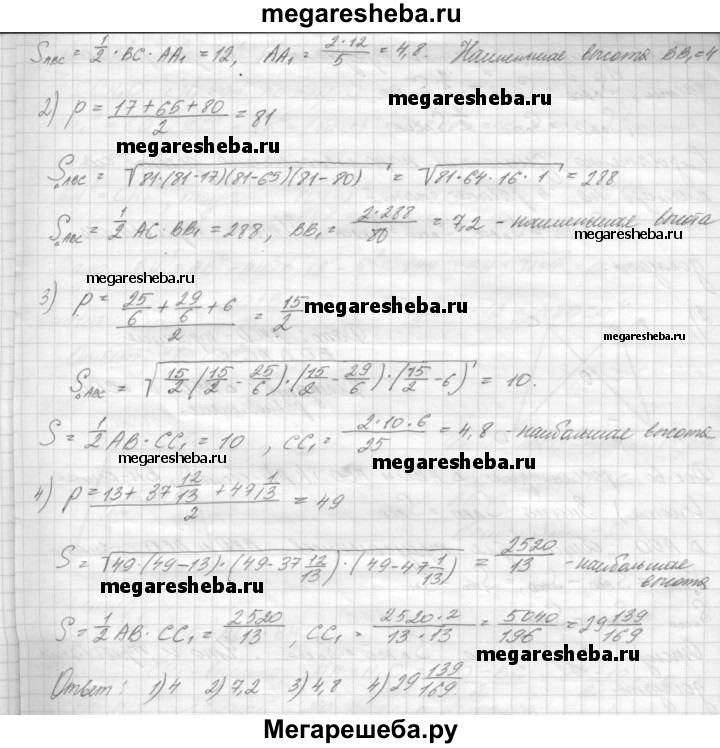 megaresheba.ru
S_АВС = 1/2 · BC · AA₁ = 12, AA₁ = 2·12/5 = 4,8. Наименьшая высота BB₁ = 4
megaresheba.ru
2) p = (17 + 65 + 80)/2 = 81
megaresheba.ru
S_АВС = √(81·(81-17)(81-65)(81-80)) = √(81·64·16·1) = 288
S_АВС = 1/2 AC · BB₁ = 288, BB₁ = 2·288/80 = 7,2 - наименьшая высота
megaresheba.ru
megaresheba.ru
3) p = (25/6 + 29/6 + 6)/2 = 15/2
megaresheba.ru
megaresheba.ru
S_АВС = √(15/2 (15/2 - 25/6)·(15/2 - 29/6)·(15/2 - 6)) = 10.
S = 1/2 AB · CC₁ = 10, CC₁ = 2·10·6/25 = 4,8 - наибольшая высота
megaresheba.ru
megaresheba.ru
4) p = (13 + 37 12/13 + 47 1/13)/2 = 49
S = √(49·(49-13)·(49-37 12/13)·(49-47 1/13)) = 2520/13 - наибольшая высота
megaresheba.ru
S = 1/2 AB · CC₁ = 2520/13, CC₁ = 2520·2/13·13 = 5040/196 = 29 139/169
megaresheba.ru
Ответ: 1) 4 2) 7,2 3) 4,8 4) 29 139/169
megaresheba.ru
Мегарешеба.ру